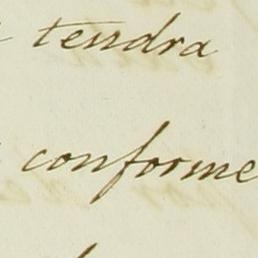 tendra
conforme